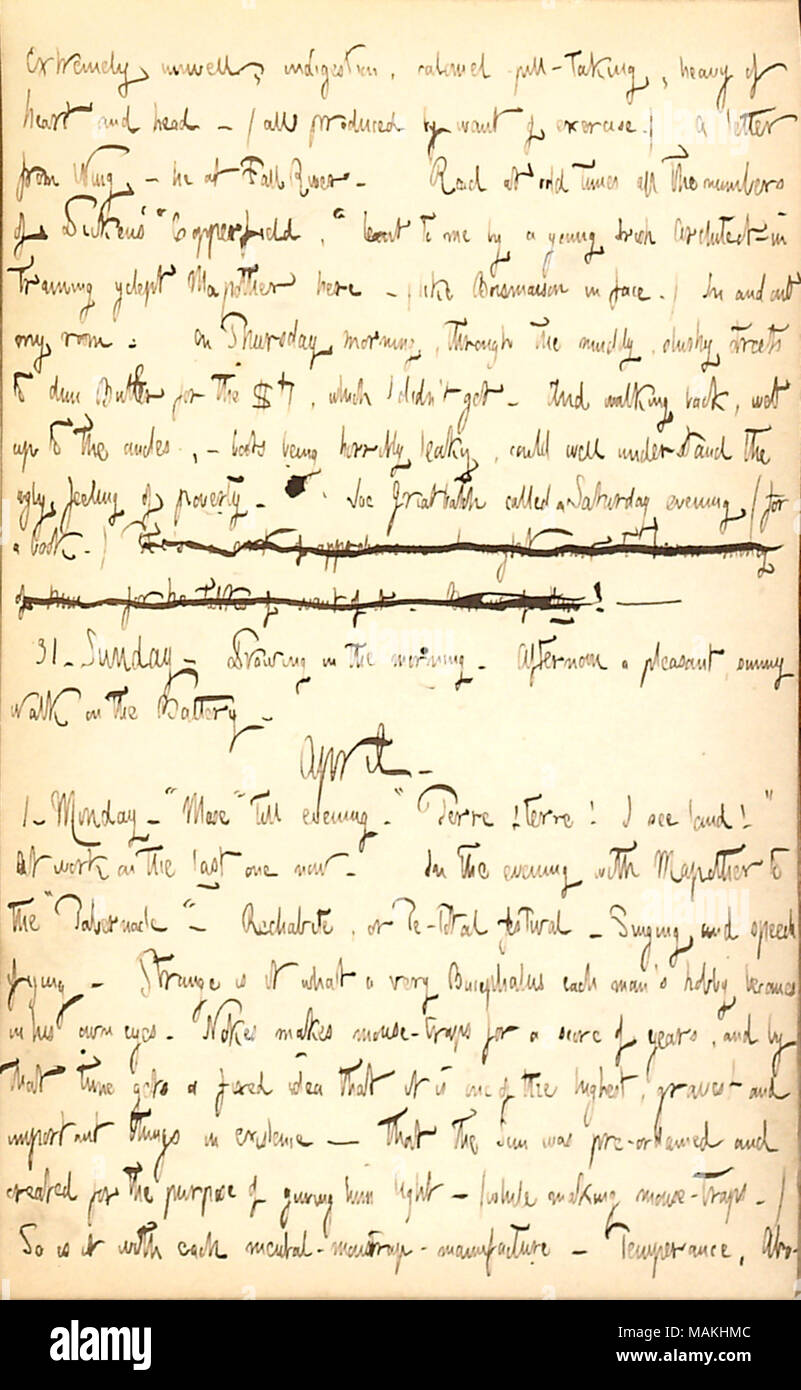 Extremely unwell, indigestion, calomel pill-taking, heavy of
heart and head - (all produced by want of exercise.) A letter
from Wing, - he at Fall River - Read at odd times all the numbers
of Dickens' "Copperfield," leant to me by a young Irish Architect-in
training yclept Mapother here - (like Boismaison in face.) In and out
my room. On Thursday morning, through the muddy, slushy streets
to dun Butler for the $7, which I didn't get - And walking back, wet
up to the ancles, - boots being horribly leaky, could well understand the
ugly feeling of poverty - Joe Greatbatch called a Saturday evening (for
a book.)
31_ Sunday_ Drawing in the morning - Afternoon a pleasant, sunny
walk on the Battery_
April_
1_ Monday_ "Mose" till evening - "Terre! terre! I see land!"
At work on the last one now - In the evening with Mapother to
the "Tabernacle" - Rechabite, or Te-total festival - Singing and speech
fying - Strange is it what a very Bucephalus each man's hobby becomes
in his own eyes - Nokes makes mouse-traps for a score of years, and by
that time gets a fixed idea that it is one of the highest, gravest and
important things in existence - that the Sun was pre-ordained and
created for the purpose of giving him light - (while making mouse-traps.)
So is it with each mental-mousetrap-manufacture - Temperance, Abo-
alamy
Image ID: MAKHMC
www.alamy.com